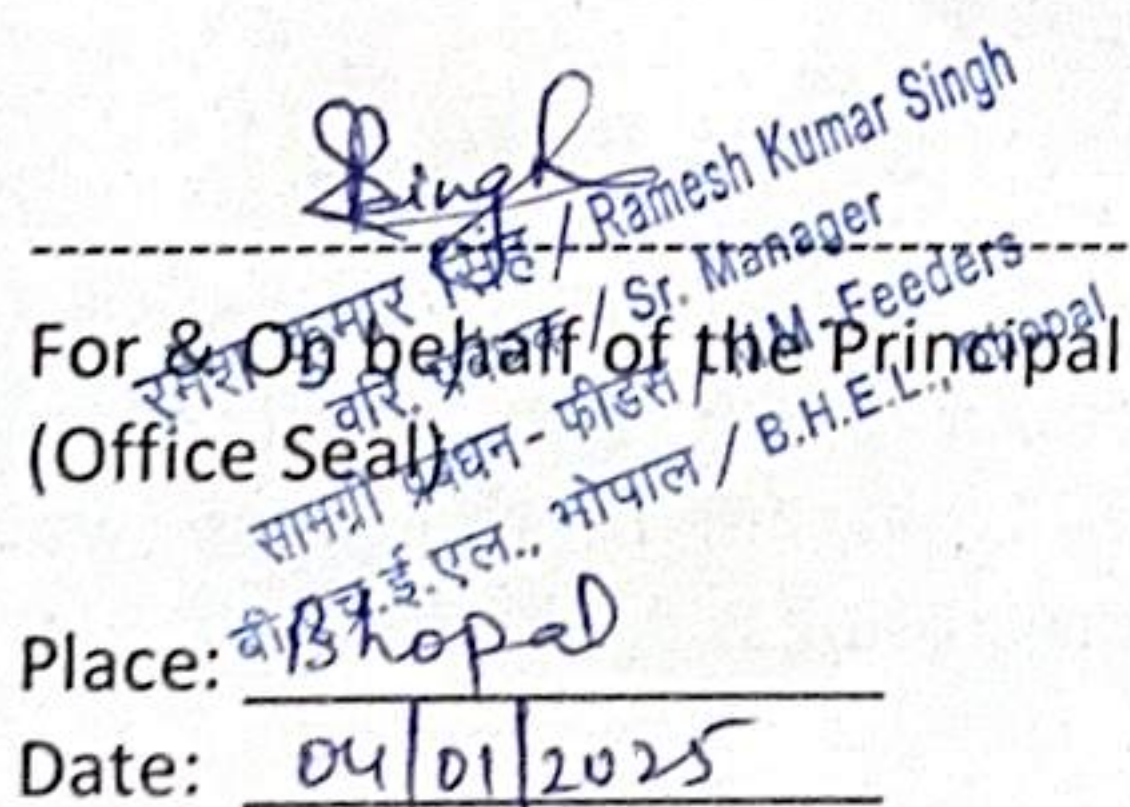 Singh
रमेश कुमार सिंह / Ramesh Kumar Singh
वरि. प्रबंधक / Sr. Manager
सामग्री प्रबंधन - फीडर्स / M.M-Feeders
बी.एच.ई.एल., भोपाल / B.H.E.L., Bhopal
For & On behalf of the Principal
(Office Seal)
Place: Bhopal
Date: 04/01/2025